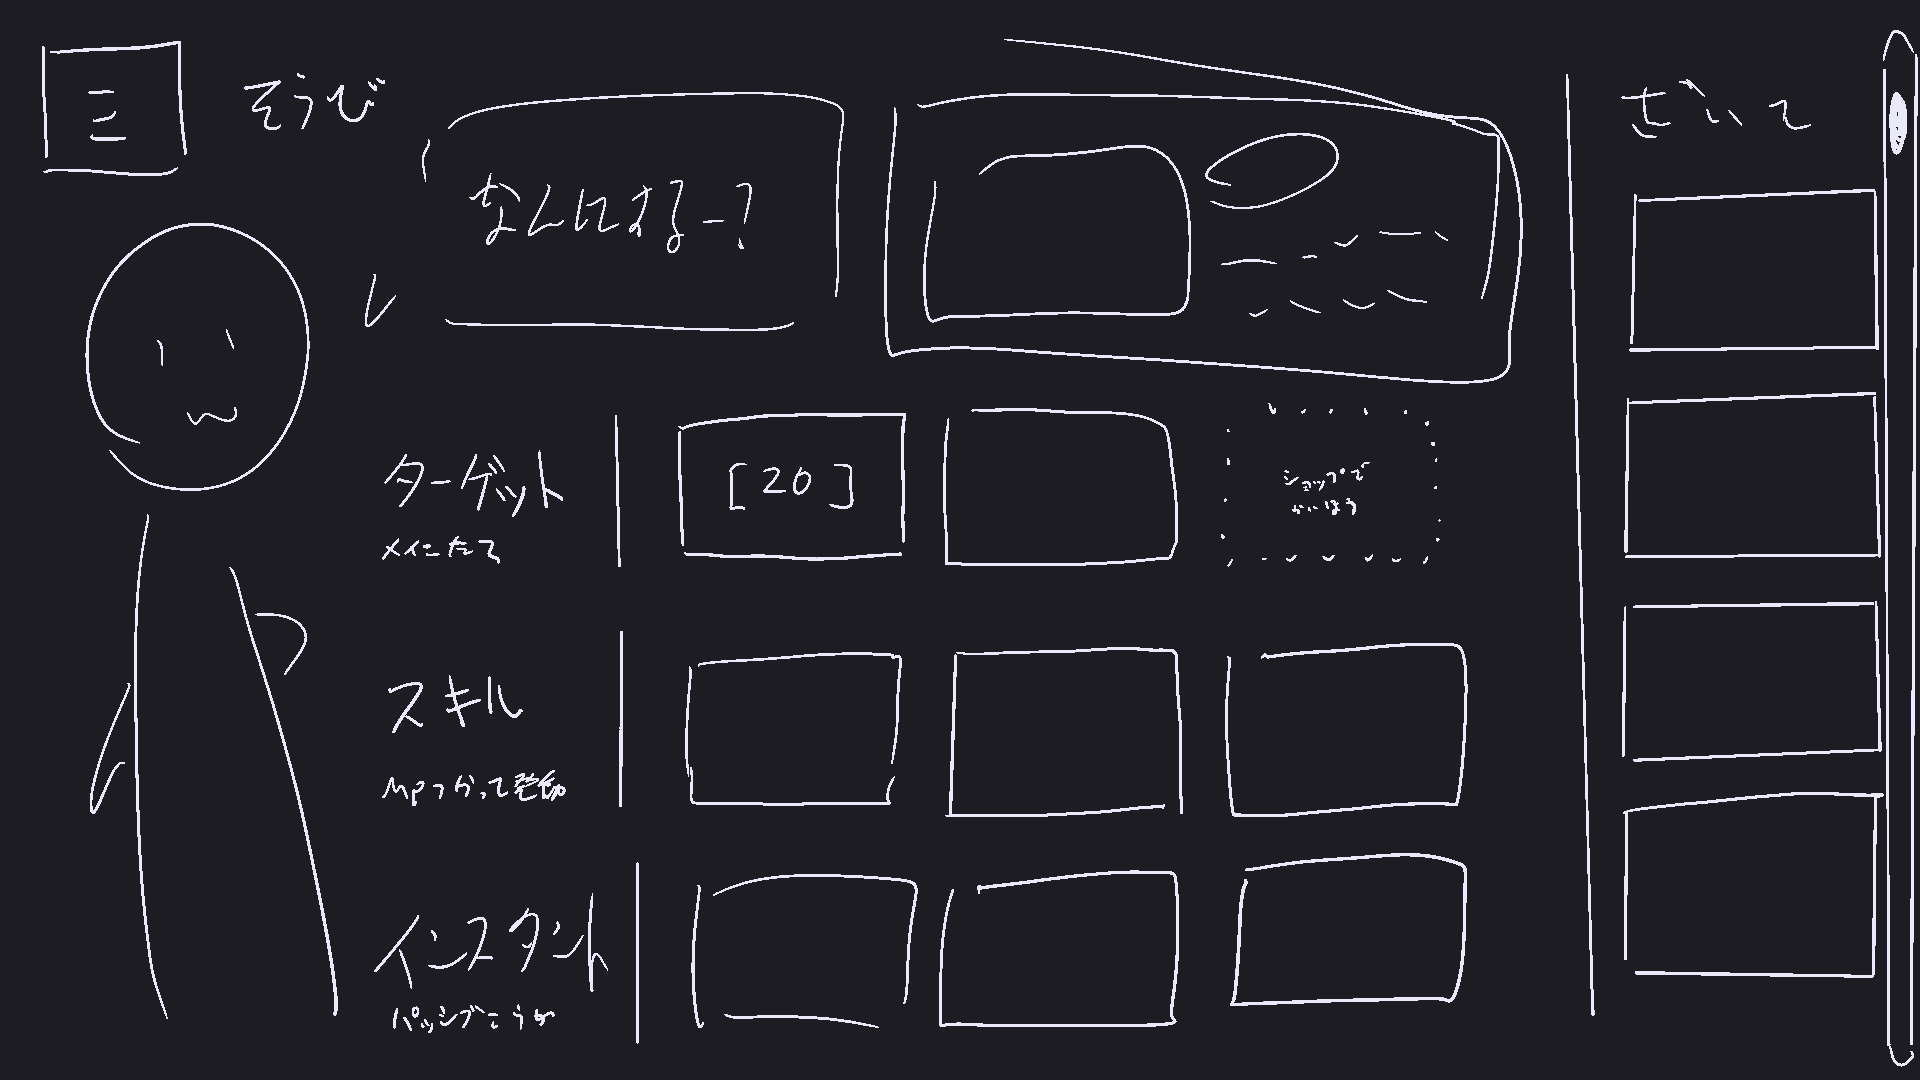 そうび
なんにするー?
ターゲット
[20]
ショップで
かいほう
スキル
MPつかって発動
インスタント
パッシブこうか